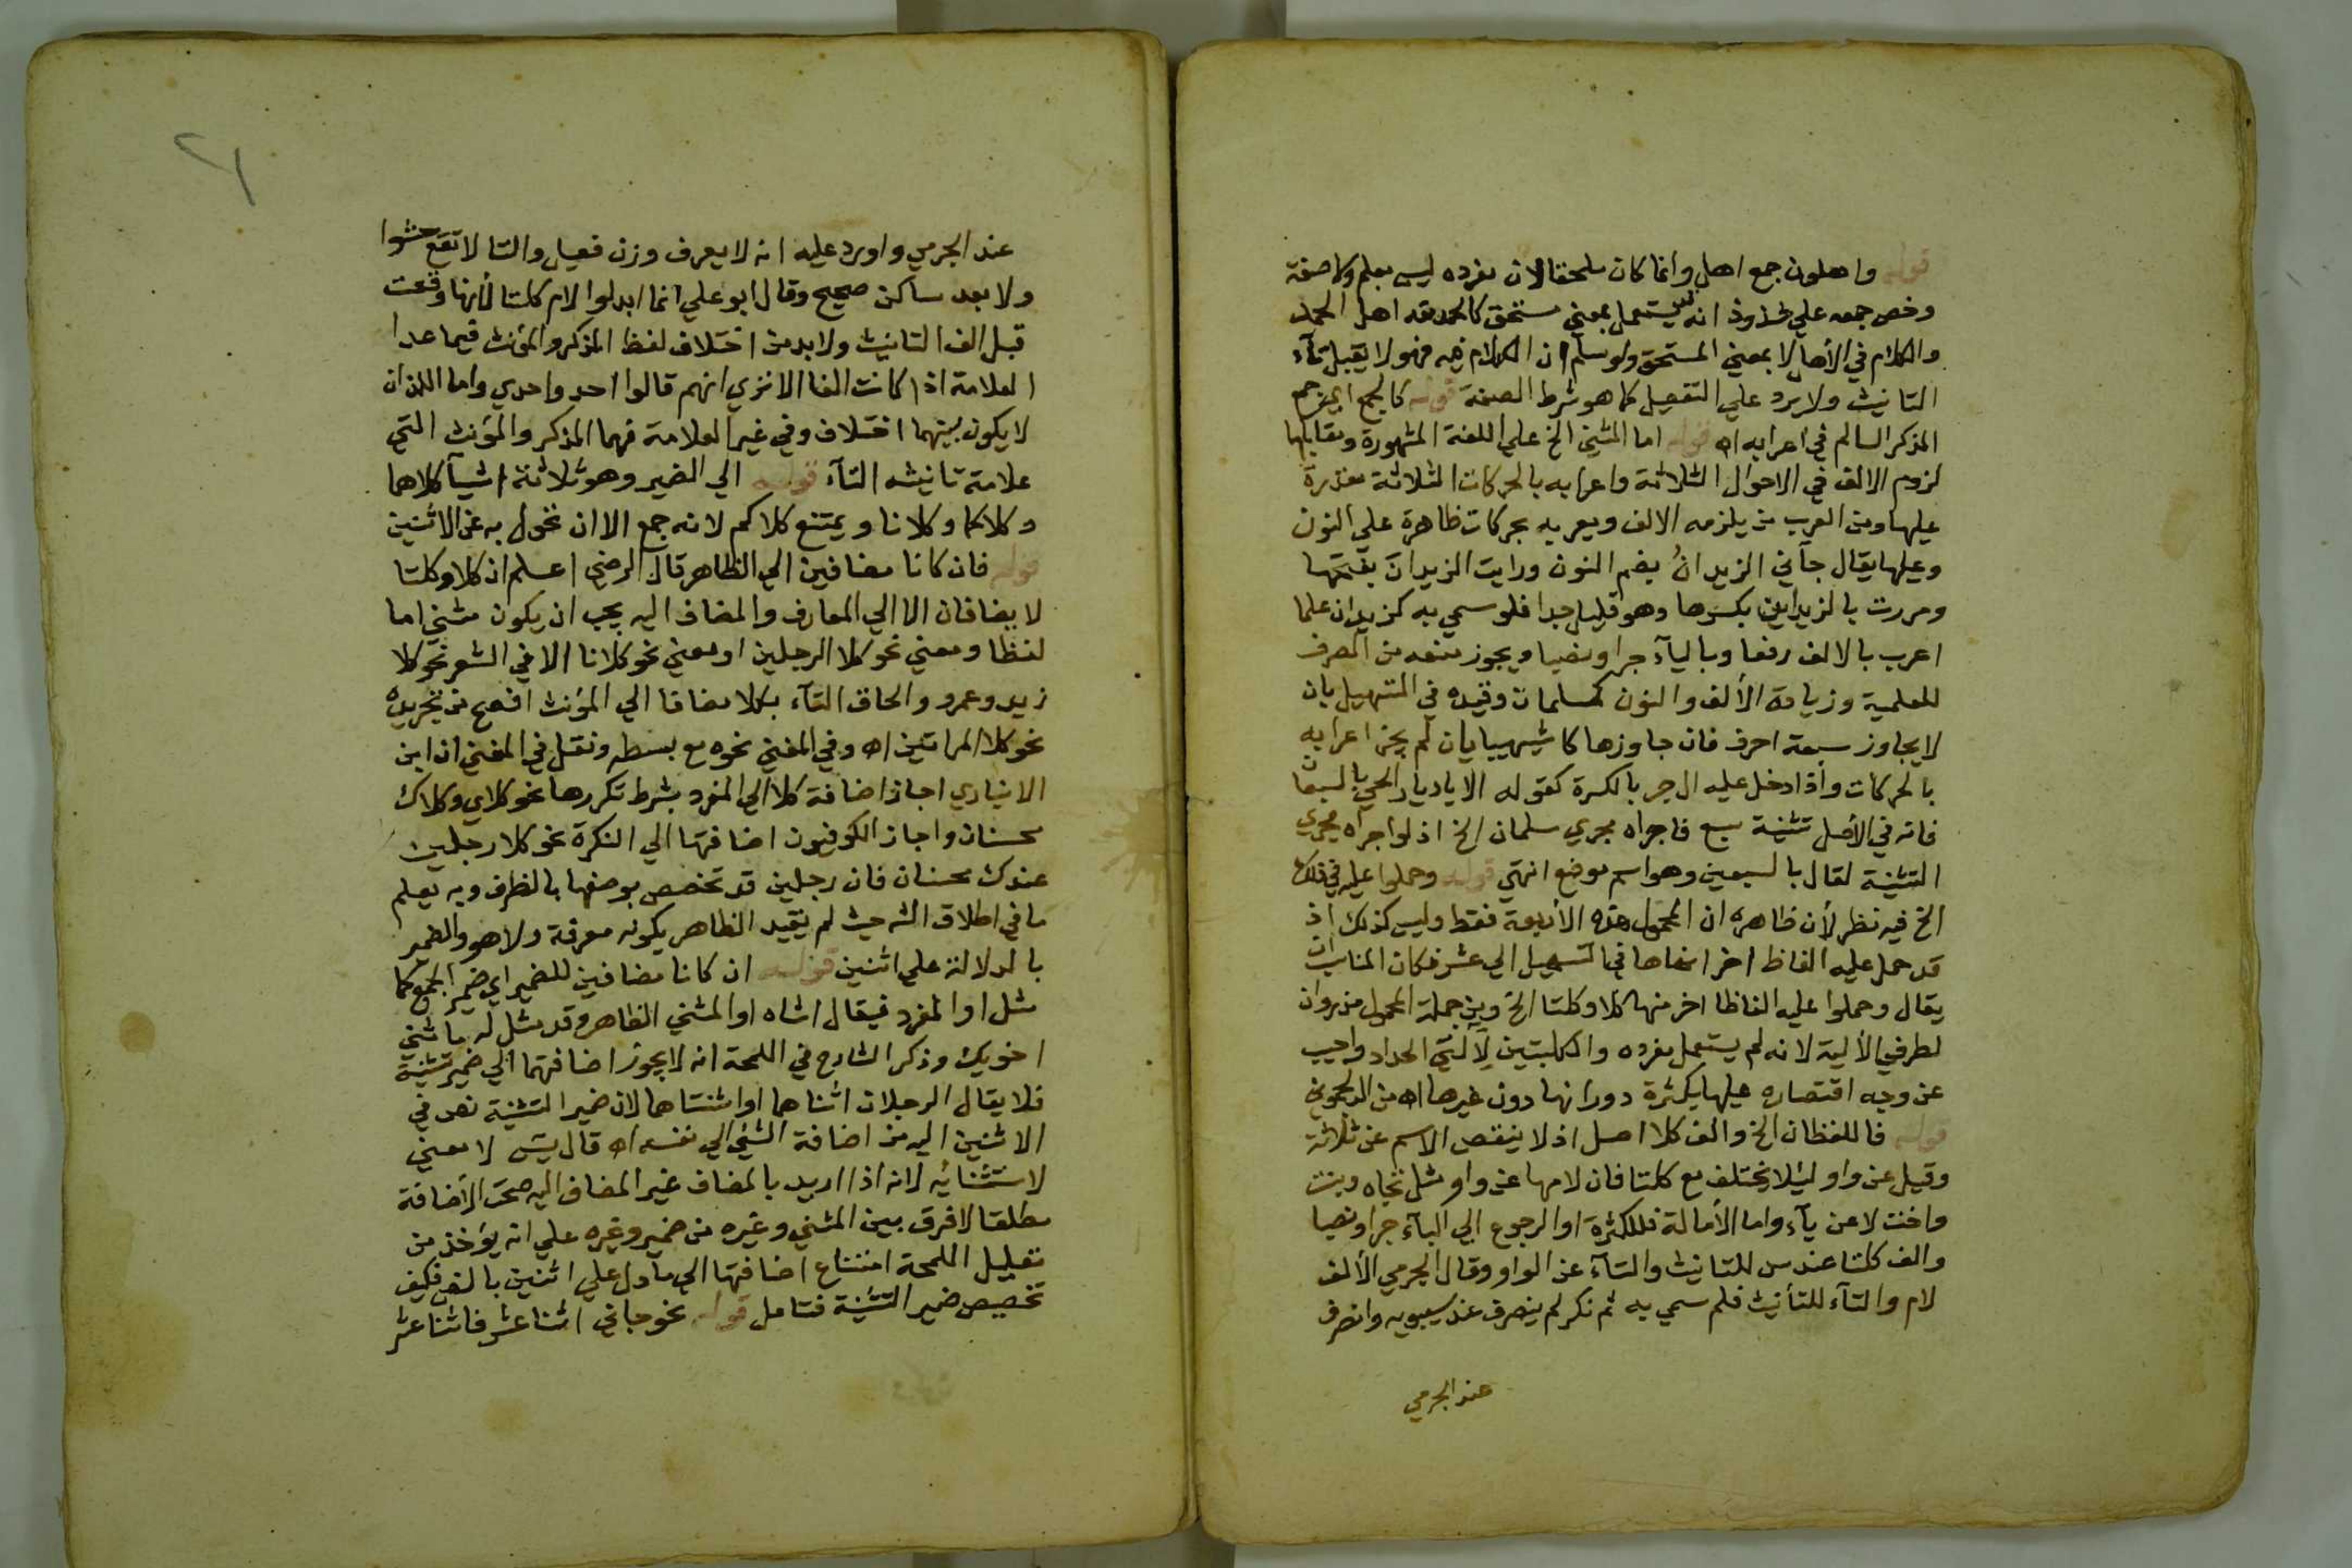 قوله واهلون جمع اهل وانما كان ملحقا لان مفرده ليس بعلم ولا صفة
وخص جمعه علي شذوذ انه يستعمل بمعني مستحق كالحمد لله اهل الحمد
والكلام في الأهل لا بمعني المستحق ولو سلم ان الكلام فيه فهو لا يقبل تآء
التانيث ولا يرد علي التفصيل كما هو شرط الصفة قوله كالجمع اي جمع
المذكر السالم في اعرابه اه قوله اما المثني الخ علي اللغة المشهورة ومقابلها
لزوم الالف في الاحوال الثلاثة واعرابه بالحركات الثلاثة مقدرة
عليها ومن العرب من يلزمه الالف ويعربه بحركات ظاهرة علي النون
وعليها يقال جآني الزيدانُ بضم النون ورايت الزيدانَ بفتحها
ومررت بالزيدان بكسرها وهو قليل جدا فلو سمي به كزيدان علما
اعرب بالالف رفعا وباليآء جرا ونصبا ويجوز منعه من الصرف
للعلمية وزيادة الألف والنون كسلمان وقيده في التسهيل بان
لا يجاوز سبعة احرف فان جاوزها كاشهيبابان لم يجز اعرابه
بالحركات واذا دخل عليه ال جر بالكسرة كقوله الا يا ديار الحي بالسبعان
فانه في الأصل تثنية سبع فاجراه مجري سلمان الخ اذ لو اجراه مجري
التثنية لقال بالسبعين وهو اسم موضع انتهي قوله وحملوا عليه في ذلك
الخ فيه نظر لأن ظاهره ان المحمول هذه الأربعة فقط وليس كذلك اذ
قد حمل عليه الفاظ اخر انهاها في التسهيل الي عشر فكان المناسب ان
يقال وحملوا عليه الفاظا اخر منها كلا وكلتا الخ ومن جملة المحمول مذروان
لطرفي الألية لانه لم يستعمل مفرده والكلبتين لآلتي الحداد واجيب
عن وجه اقتصاره عليها بكثرة دورانها دون غيرها اه من الدلجموني
قوله فاللفظان الخ والف كلا اصل اذ لا ينقص الاسم عن ثلاثة
وقيل عن واو ليئلا يختلف مع كلتا فان لامها عن واو مثل تجاه وبنت
واخت لا عن يآء واما الأمالة فللكثرة او الرجوع الي اليآء جرا ونصبا
والف كلتا عند س للتانيث والتآء عن الواو وقال الجرمي الألف
لام والتآء للتأنيث فلم سمي به ثم نكر لم ينصرف عند سيبويه وانصرف
عند الجرمي
٢١
عند الجرمي واورد عليه انه لا يعرف وزن فعيل والتا لا تقع حشوا
ولا بعد ساكن صحيح وقال ابو علي انما ابدلوا لام كلتا لأنها وقعت
قبل الف التانيث ولا بد من اختلاف لفظ المذكر والمؤنث فيما عدا
العلامة اذا كانت الفا الا تري انهم قالوا احد واحدي واما اللذان
لا يكون بينهما اختلاف وفي غير العلامة فهما المذكر والمؤنث التي
علامة تانيثه التآء قوله الي الضمير وهو ثلاثة اشيآ كلاهما
وكلاكما وكلانا ويمتنع كلاكم لانه جمع الا ان نحول به عن الاثنين
قوله فان كانا مضافين الي الظاهر قال الرضي اعلم ان كلا وكلتا
لا يضافان الا الي المعارف والمضاف اليه يجب ان يكون مثني اما
لفظا ومعني نحو كلا الرجلين او معني نحو كلانا الا في الشعر نحو كلا
زيد وعمرو والحاق التآء بكلا مضافا الي المؤنث افصح من تجريده
نحو كلا المراتين اه وفي المغني نحوه مع بسطه ونقل في المغني ان ابن
الانباري اجاز اضافة كلا الي المفرد بشرط تكررها نحو كلاي وكلاك
محسنان واجاز الكوفيون اضافتها الي النكرة نحو كلا رجلين
عندك محسنان فان رجلين قد تخصص بوصفها بالظرف وبه يعلم
ما في اطلاق الش حيث لم يقيد الظاهر بكونه معرفة ولا هو والضمير
بالدلالة علي اثنين قوله ان كانا مضافين للضمير اي ضمير الجمع كما
مثل او المفرد فيقال اثناه او المثني الظاهر وقد مثل له ما ثني
اخويك وذكر الشارح في اللمحة انه لا يجوز اضافتهما الي ضمير تثنية
فلا يقال الرجلان اثناهما او اثنتاهما لان ضمير التثنية نص في
الاثنين اليه من اضافة الشئ الي نفسه اه قال يس لا معني
لاستثنائه لانه اذا اريد بالمضاف غير المضاف اليه صحت الأضافة
مطلقا لا فرق بين المثني وغيره من ضمير وغيره علي انه يؤخذ من
تعليل اللمحة امتناع اضافتها الي ما دل علي اثنين بالف فكيف
تخصيص ضمير التثنية فتامل قوله نحو جاني اثنا عشر فاثنا عشر